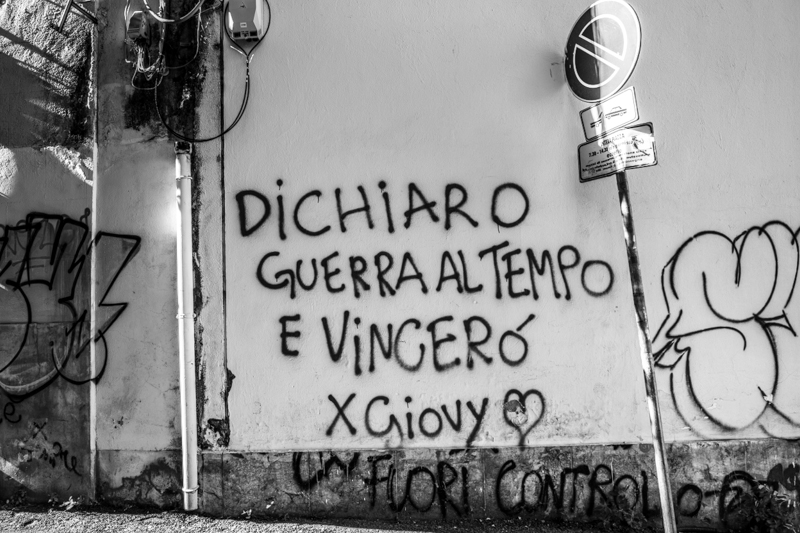 DiCHiARO
GUERRA AL TEMPO
E ViNCERÓ
X GiOVY
FUORI CONTROL